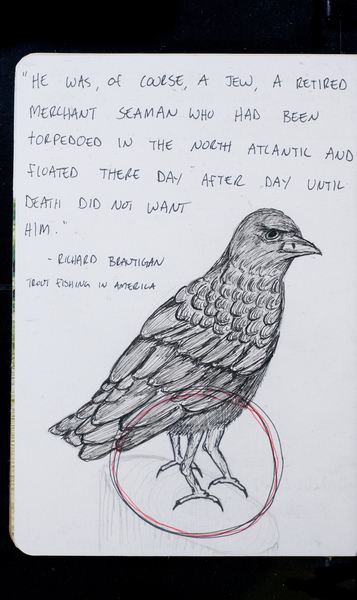 "HE WAS, OF COURSE, A JEW, A RETIRED
MERCHANT SEAMAN WHO HAD BEEN
TORPEDOED IN THE NORTH ATLANTIC AND
FLOATED THERE DAY AFTER DAY UNTIL
DEATH DID NOT WANT
HIM."
- RICHARD BRAUTIGAN
TROUT FISHING IN AMERICA